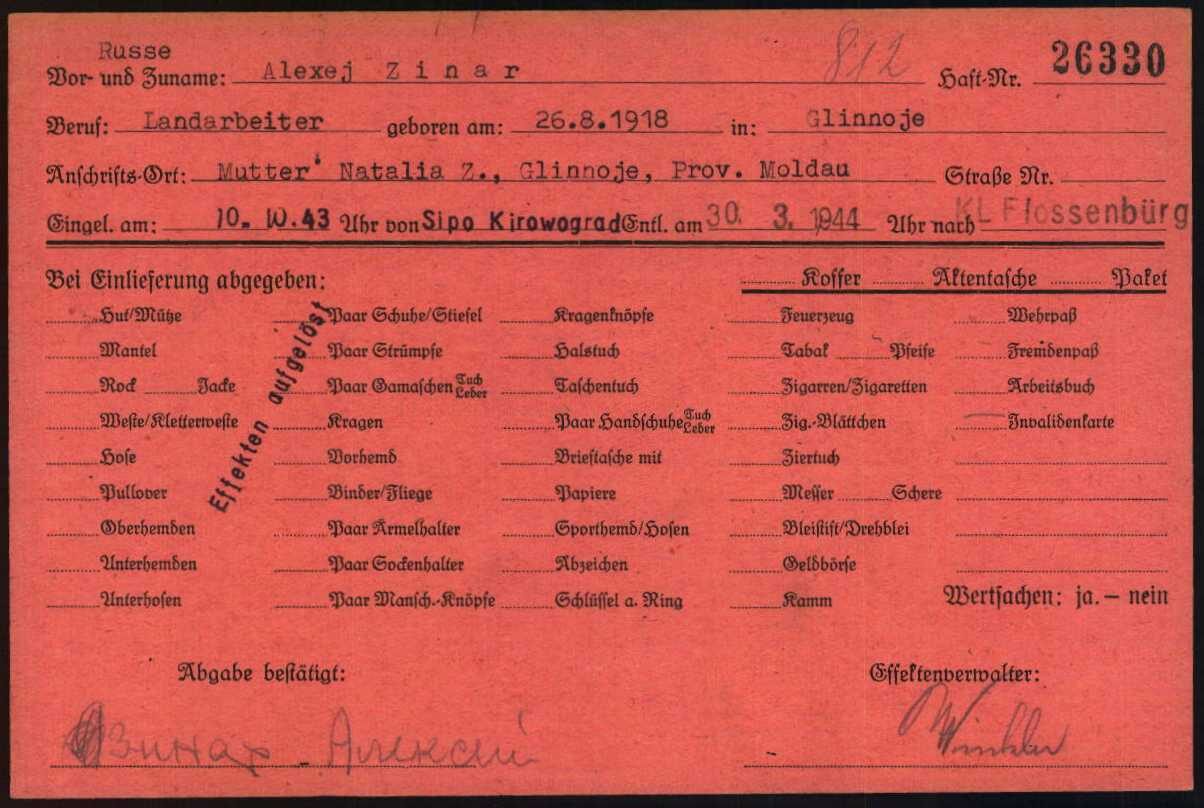 Russe
Vor- und Zuname: Alexej Zinar 812 Haft-Nr. 26330
Beruf: Landarbeiter geboren am: 26.8.1918 in: Glinnoje
Anschrifts-Ort: Mutter Natalia Z., Glinnoje, Prov. Moldau Straße Nr.
Eingel. am: 10. 10. 43 Uhr von Sipo Kirowograd Entl. am 30. 3. 1944 Uhr nach KL Flossenbürg
Bei Einlieferung abgegeben: Koffer Aktentasche Paket
Hut/Mütze Paar Schuhe/Stiefel Kragenknöpfe Feuerzeug Wehrpaß
Mantel Paar Strümpfe Halstuch Tabak Pfeife Fremdenpaß
Rock Jacke Paar Gamaschen Tuch Leder Taschentuch Zigarren/Zigaretten Arbeitsbuch
Weste/Kletterweste Kragen Paar Handschuhe Tuch Leder Zig.-Blättchen Invalidenkarte
Hose Vorhemd Brieftasche mit Ziertuch
Pullover Binder/Fliege Papiere Messer Schere
Oberhemden Paar Ärmelhalter Sporthemd/Hosen Bleistift/Drehblei
Unterhemden Paar Sockenhalter Abzeichen Geldbörse
Unterhosen Paar Mansch.-Knöpfe Schlüssel a. Ring Kamm Wertsachen: ja.- nein
Effekten aufgelöst
Abgabe bestätigt: Effektenverwalter:
Зинар Алексей Winkler